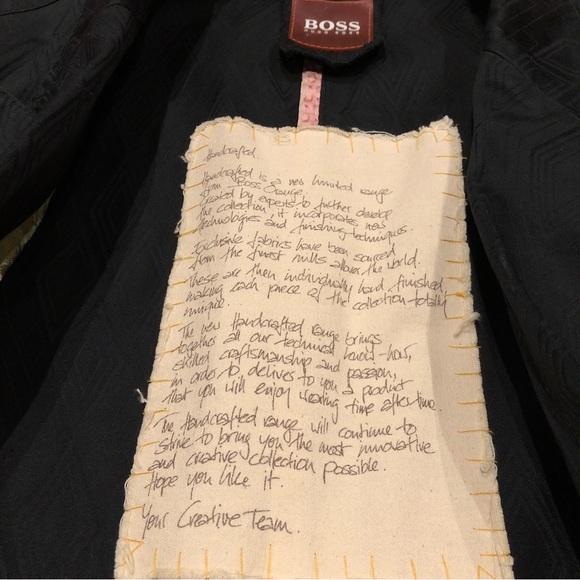 BOSS
HUGO BOSS
Handcrafted.
Handcrafted is a new limited range
from Boss Orange.
Created by experts to further develop
the collection, it incorporates new
technologies and finishing techniques.
Exclusive fabrics have been sourced
from the finest mills allover the world.
These are then individually hand finished,
making each piece of the collection totally
unique.
The new Handcrafted range brings
together all our technical know-how,
skilled craftsmanship and passion,
in order to, delivers to you a product
that you will enjoy wearing time after time.
The Handcrafted range will continue to
strive to bring you the most innovative
and creative collection possible.
Hope you like it.
Your Creative Team.